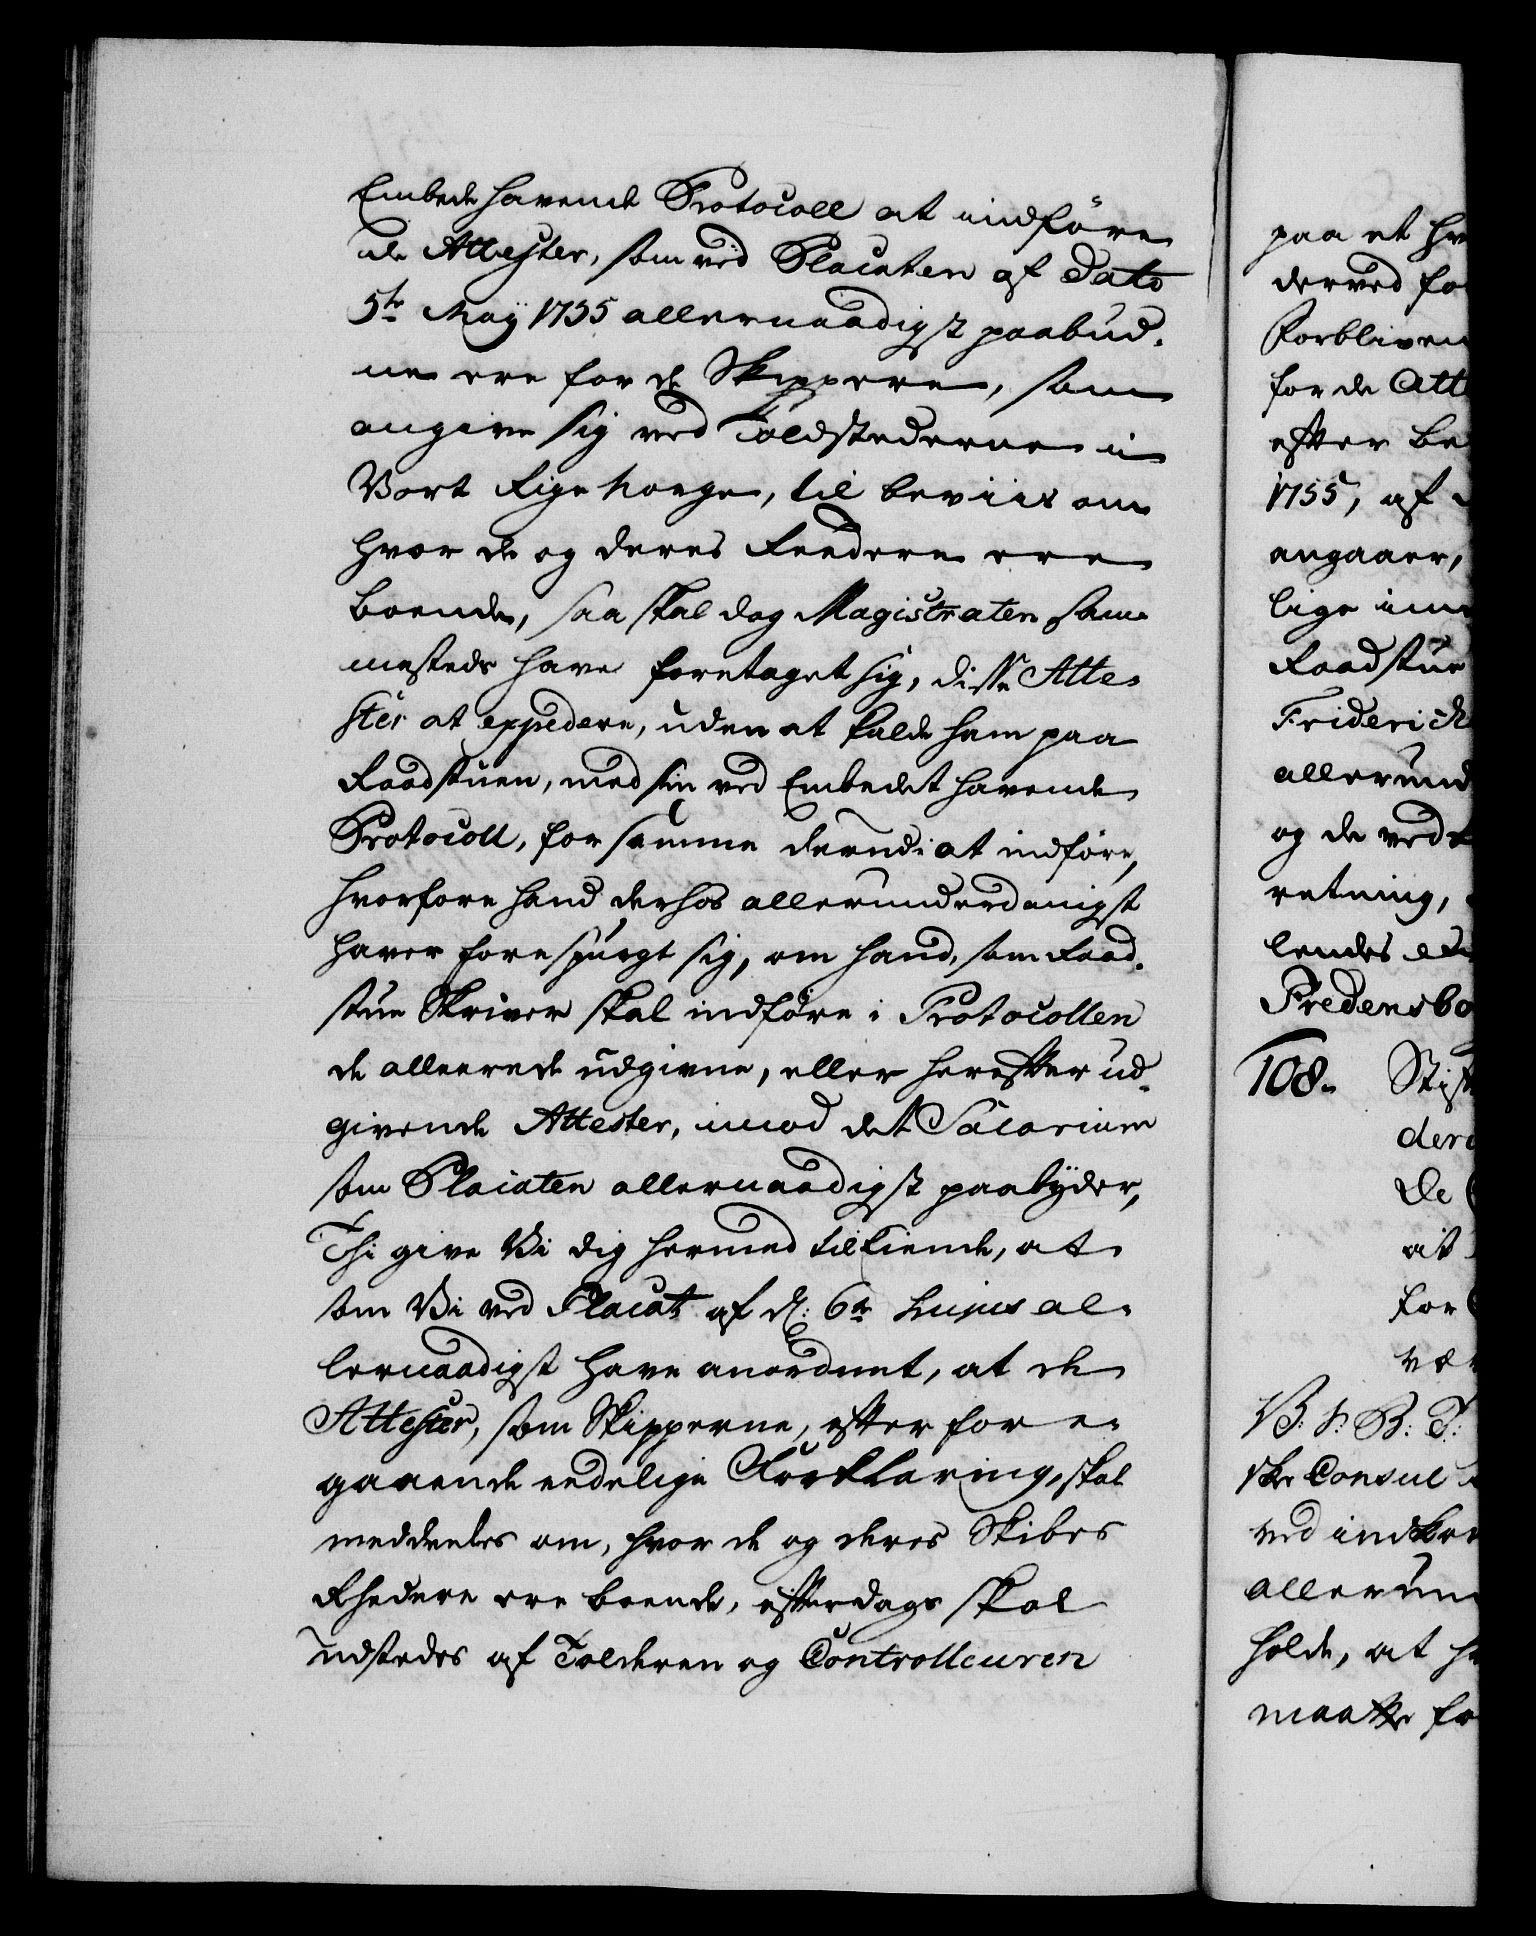 Embede havende Protocoll at indføre
de Attester, som ved Placaten af Dato
5te Maÿ 1755 allernaadigst paabud-
ne ere for de Skippere, som
angive sig ved Toldstederne i
Vort Rige Norge, til beviis om
hvor de og deres Reedere ere
boende, saa skal dog Magistraten sam-
mesteds have foretaget sig, disse Atte-
ster at expedere, uden at kalde ham paa
Raadstuen, med sin ved Embedet havende
Protocoll, for samme derudi at indføre,
hvorfore hand derhos allerunderdanigst
haver forespurgt sig, om hand, som Raad-
stue Skriver skal indføre i Protocollen
de allerede udgivne, eller herefter ud-
givende Attester, imod det Salarium
som Placaten allernaadigst paabÿder,
Thi give Vi dig hermed tilkiende, at
som Vi ved Placat af d: 6te hujus al-
lernaadigst have anordnet, at de
Attester, som Skipperne, efter fore-
gaaende eedelige Forklaring, skal
meddeeles om, hvor de og deres Skibes
Rhedere ere boende, efterdags skal
udstedes af Tolderen og Controlleuren
paa et
derved
Forbliven
for de Att
efter be
1755, af
angaaer,
lige
Raadstue
Friderich
allerund
og de ved
retning,
lendes
Fredensbo
108. Stift
de
at
for
vær
V: S: B: T:
ske Consul
ved
allerun
holde, at
maatte